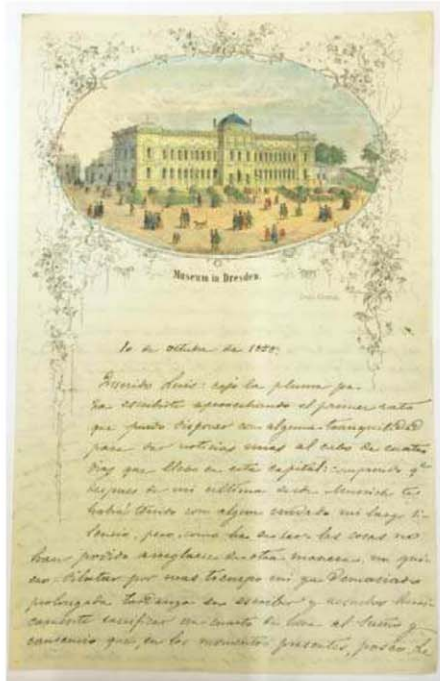 Museum in Dresden.
10 de octubre de 1858.
Querido Luis: cojo la pluma pa-
ra escribirte aprovechando el primer rato
que puedo disponer con alguna tranquilidad
para dar noticias mias al cabo de cuatro
dias que llevo en esta capital: comprendo qe
despues de mi ultima desde Munich te
habrá tenido con algun cuidado mi largo si-
lencio, pero, como las cosas no
han podido arreglarse de otra manera, no quie-
ro dilatar por mas tiempo mi ya demasiado
prolongada tardanza en escribir y
sacrificar un cuarto de hora al sueño y
cansancio que, en los momentos presentes, poseo. He